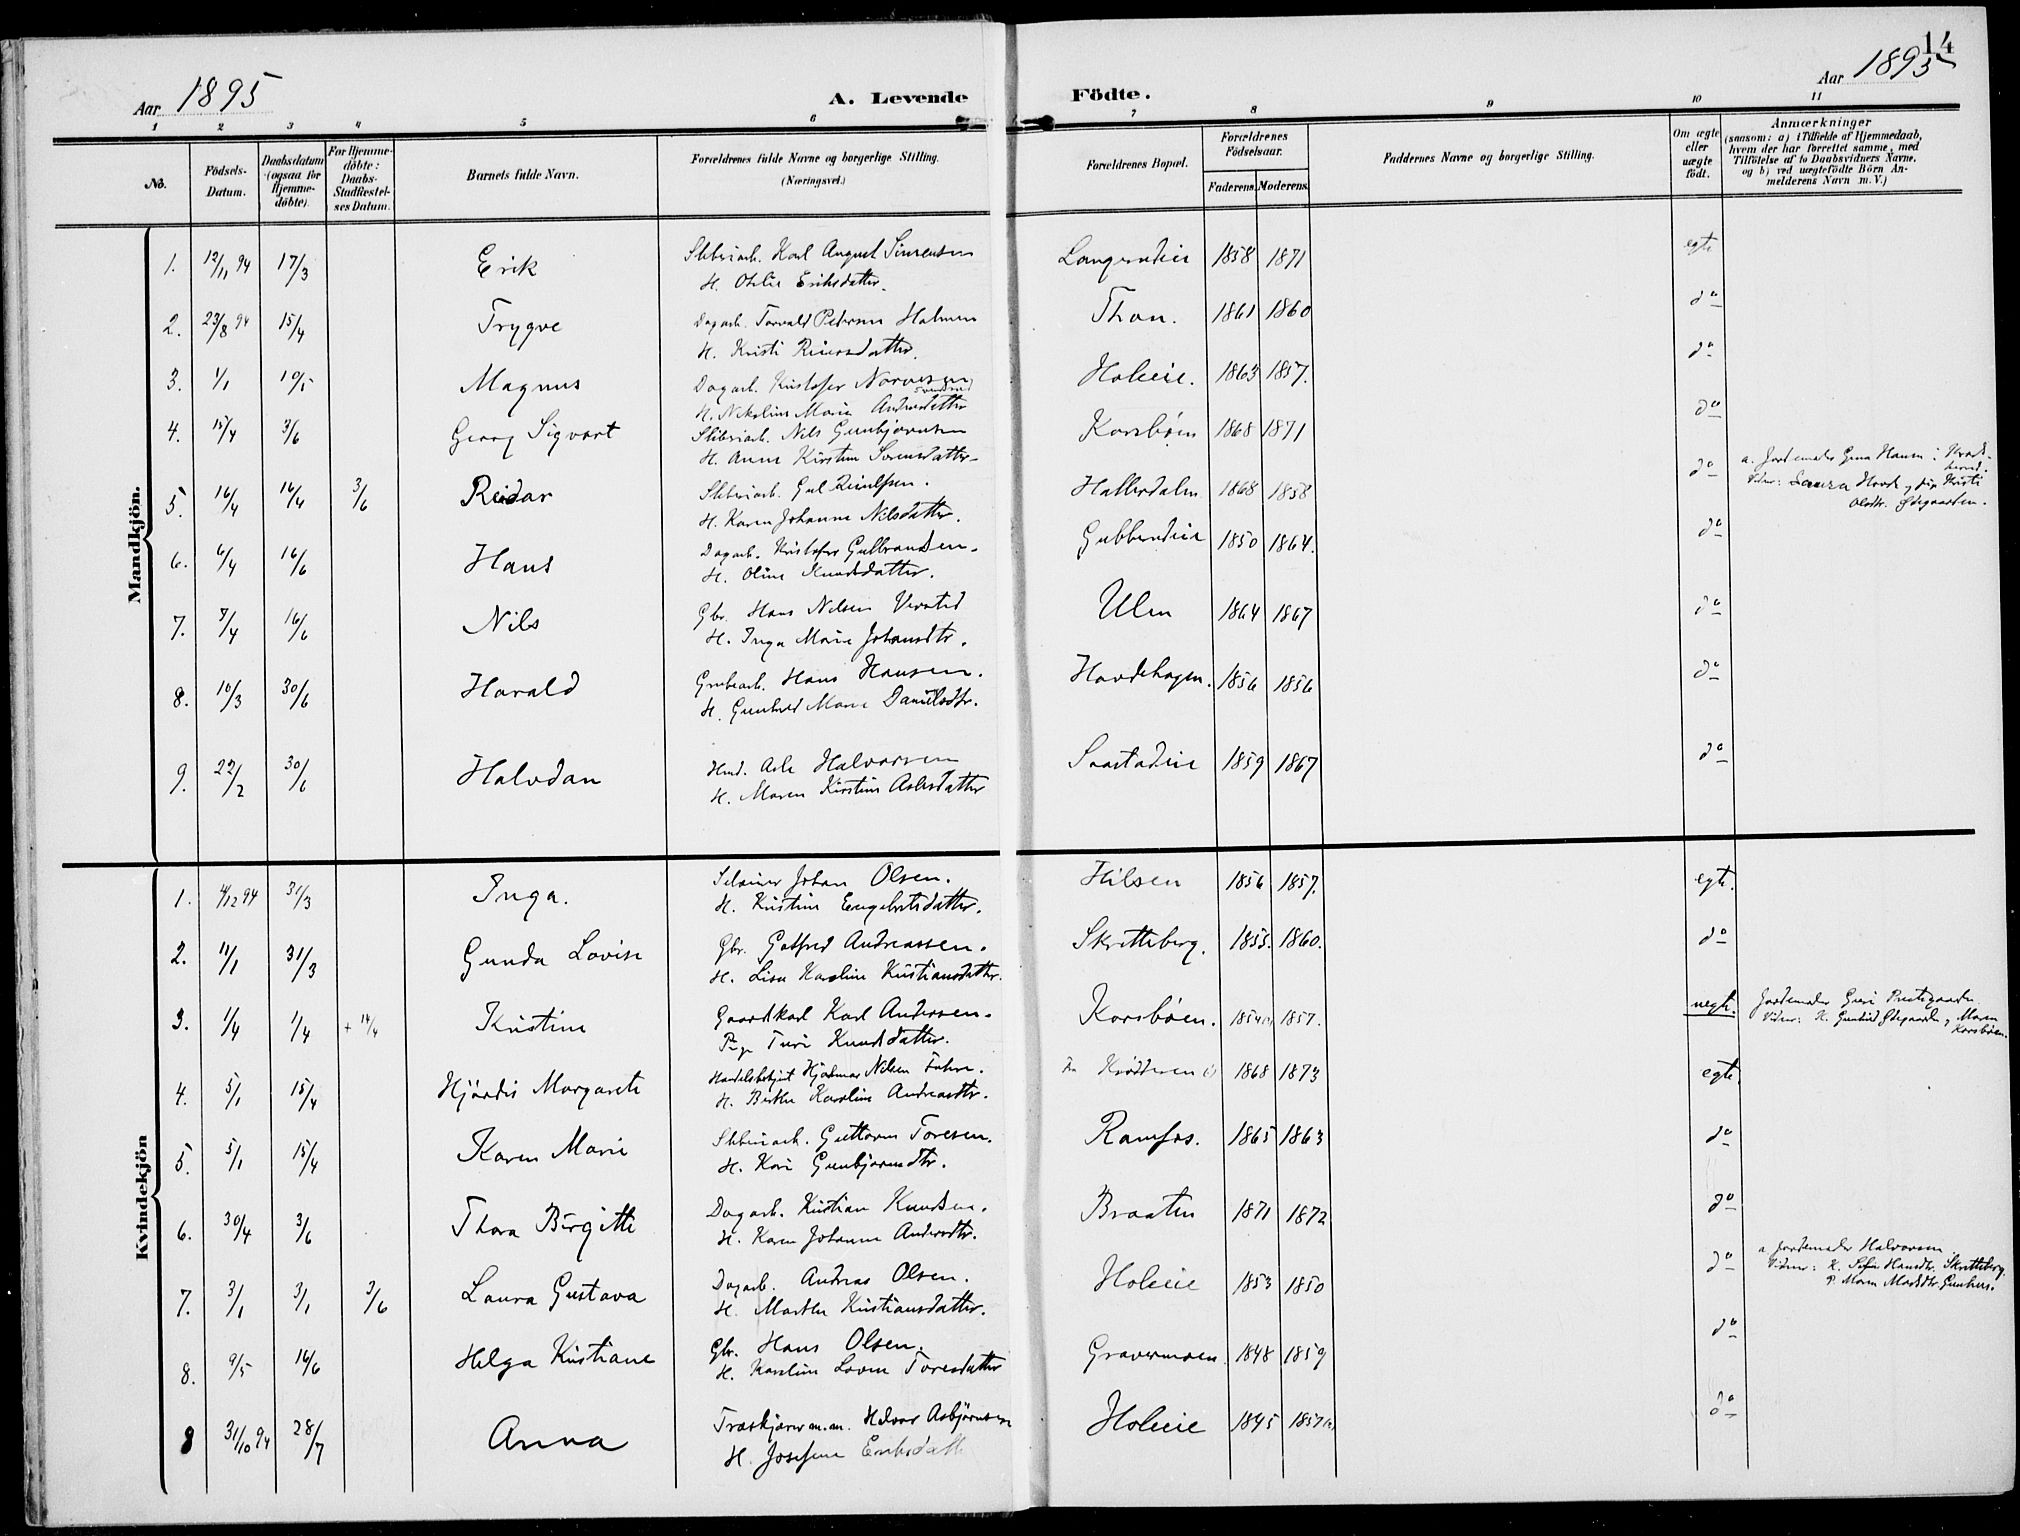 14
Aar 1895
A. Levende Födte.
Aar 1895
1 2 3 4 5 6 7 8 9 10 11
No.
Födsels-Datum.
Daabsdatum (ogsaa for Hjemme-döbte).
For Hjemme-döbte: Daabs-Stadfæstel-ses Datum.
Barnets fulde Navn.
Forældrenes fulde Navne og borgerlige Stilling. (Næringsvei.)
Forældrenes Bopæl.
Forældrenes Födselsaar.
Faderens. Moderens.
Faddernes Navne og borgerlige Stilling.
Om ægte eller uægte födt.
Anmærkninger (saasom: a) i Tilfælde af Hjemmedaab, hvem der har forrettet samme, med Tilföielse af to Daabsvidners Navne, og b) ved uægtefödte Börn An-melderens Navn m. V.)
Mandkjön.
1. 12/1 94 17/3 Erik Sliberiarb. Karl August Simensen 1858 1871 egte
H. Otilie Eriksdatter.
2. 23/8 94 15/4 Trygve Dagarb. Torvald Petersen Holmen Thon. 1861 1860 do
H. Kristi Reiersdatter.
3. 1/1 10/5 Magnus Dagarb. Kristofer Holeie. 1863 1857. do
H. Nikoline Marie Andersdatter
4. 15/4 3/6 Georg Sigvart Sliberiarb. Nils Gunbjørnsen Korsbøen 1868 1871 do
H. Anne Kirstine Sørensdatter
5. 16/4 16/4 3/6 Reidar Sliberiarb. Gul. Hallerdalen 1868 1858 do a. Jordemoder Hansen i
H. Karen Johanne Nilsdatter. Vidner: Laura
Ødegaarden.
6. 6/4 16/6 Hans Dagarb. Kristofer Gulbransen. 1850 1864. do
H. Oline Knudsdatter.
7. 7/4 16/6 Nils Gbr. Hans Nilsen Ulen 1864 1867 do
H. Inga Marie Johansdtr.
8. 10/3 30/6 Harald Grubearb. Hans Hansen. Hovdehagen. 1856 1856 do
H. Gunhild Marie Danielsdtr.
9. 22/2 30/6 Halvdan Hmd. Asle Halvorsen 1859 1867 do
H. Maren Kirstine Aslesdatter
Kvindekjön
1. 4/12 94 31/3 Inga. Johan Olsen. Hilsen 1856 1857. egte.
H. Kristine Engebretsdatter.
2. 11/1 31/3 Gunda Lovise Gbr. Gotfred Andreassen. Skretteberg. 1855. 1860. do
H. Lise Karoline Kristiansdatter.
3. 1/4 1/4 + 14/4 Kristine Gaardskarl Karl Andersen. Korsbøen. 1854 1857. uegte. Jordemoder
Pige Turi Knudsdatter. Vidner: K. Gunhild Ødegaarden, Maren
Korsbøen.
4. 5/1 15/4 Hjördis Margarete Hjalmar Nilsen Krøderen 1868 1873 egte.
H. Karoline Andreasdtr.
5. 5/1 15/4 Karen Marie Sliberiarb. Guttorm Toresen. Ramfos. 1865 1863 do
H. Kari Gunbjørnsdtr.
6. 30/4 3/6 Thora Birgitte Dagarb. Kristian Knudsen. Braaten 1871 1872 do
H. Karen Johanne Andersdtr.
7. 3/1 3/1 3/6 Laura Gustava Dagarb. Andreas Olsen. Holeie 1853 1850 do a. Jordemoder Halvorsen
H. Marthe Kristiansdatter. Vidner: K. Sofie Hansdtr. Skretteberg.
P. Maren
8. 9/5 16/6 Helga Kristiane Gbr. Hans Olsen. Gravermoen. 1848 1859 do
H. Karoline Toresdatter
9 31/10 94 28/7 Anna Træskjærer m.m. Halvor Asbjørnsen Holeie 1845 1857 do
H. Josefine Eriksdatt